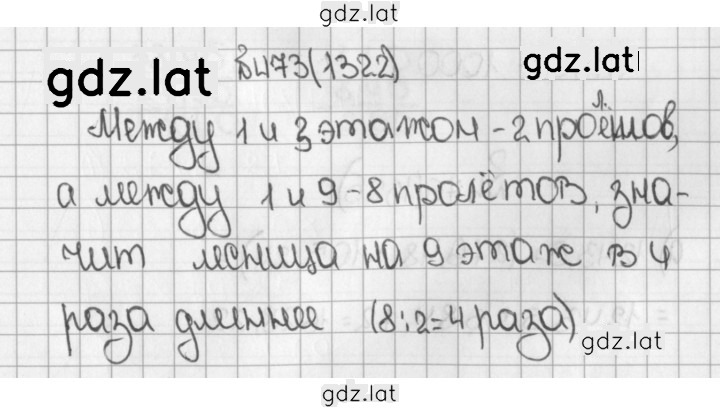 gdz.lat
gdz.lat №473(1322) gdz.lat
Между 1 и 3 этажом - 2 пролётов,
а между 1 и 9 - 8 пролётов, зна-
чит лесница на 9 этаж в 4
раза длиннее (8:2=4 раза)
gdz.lat
gdz.lat